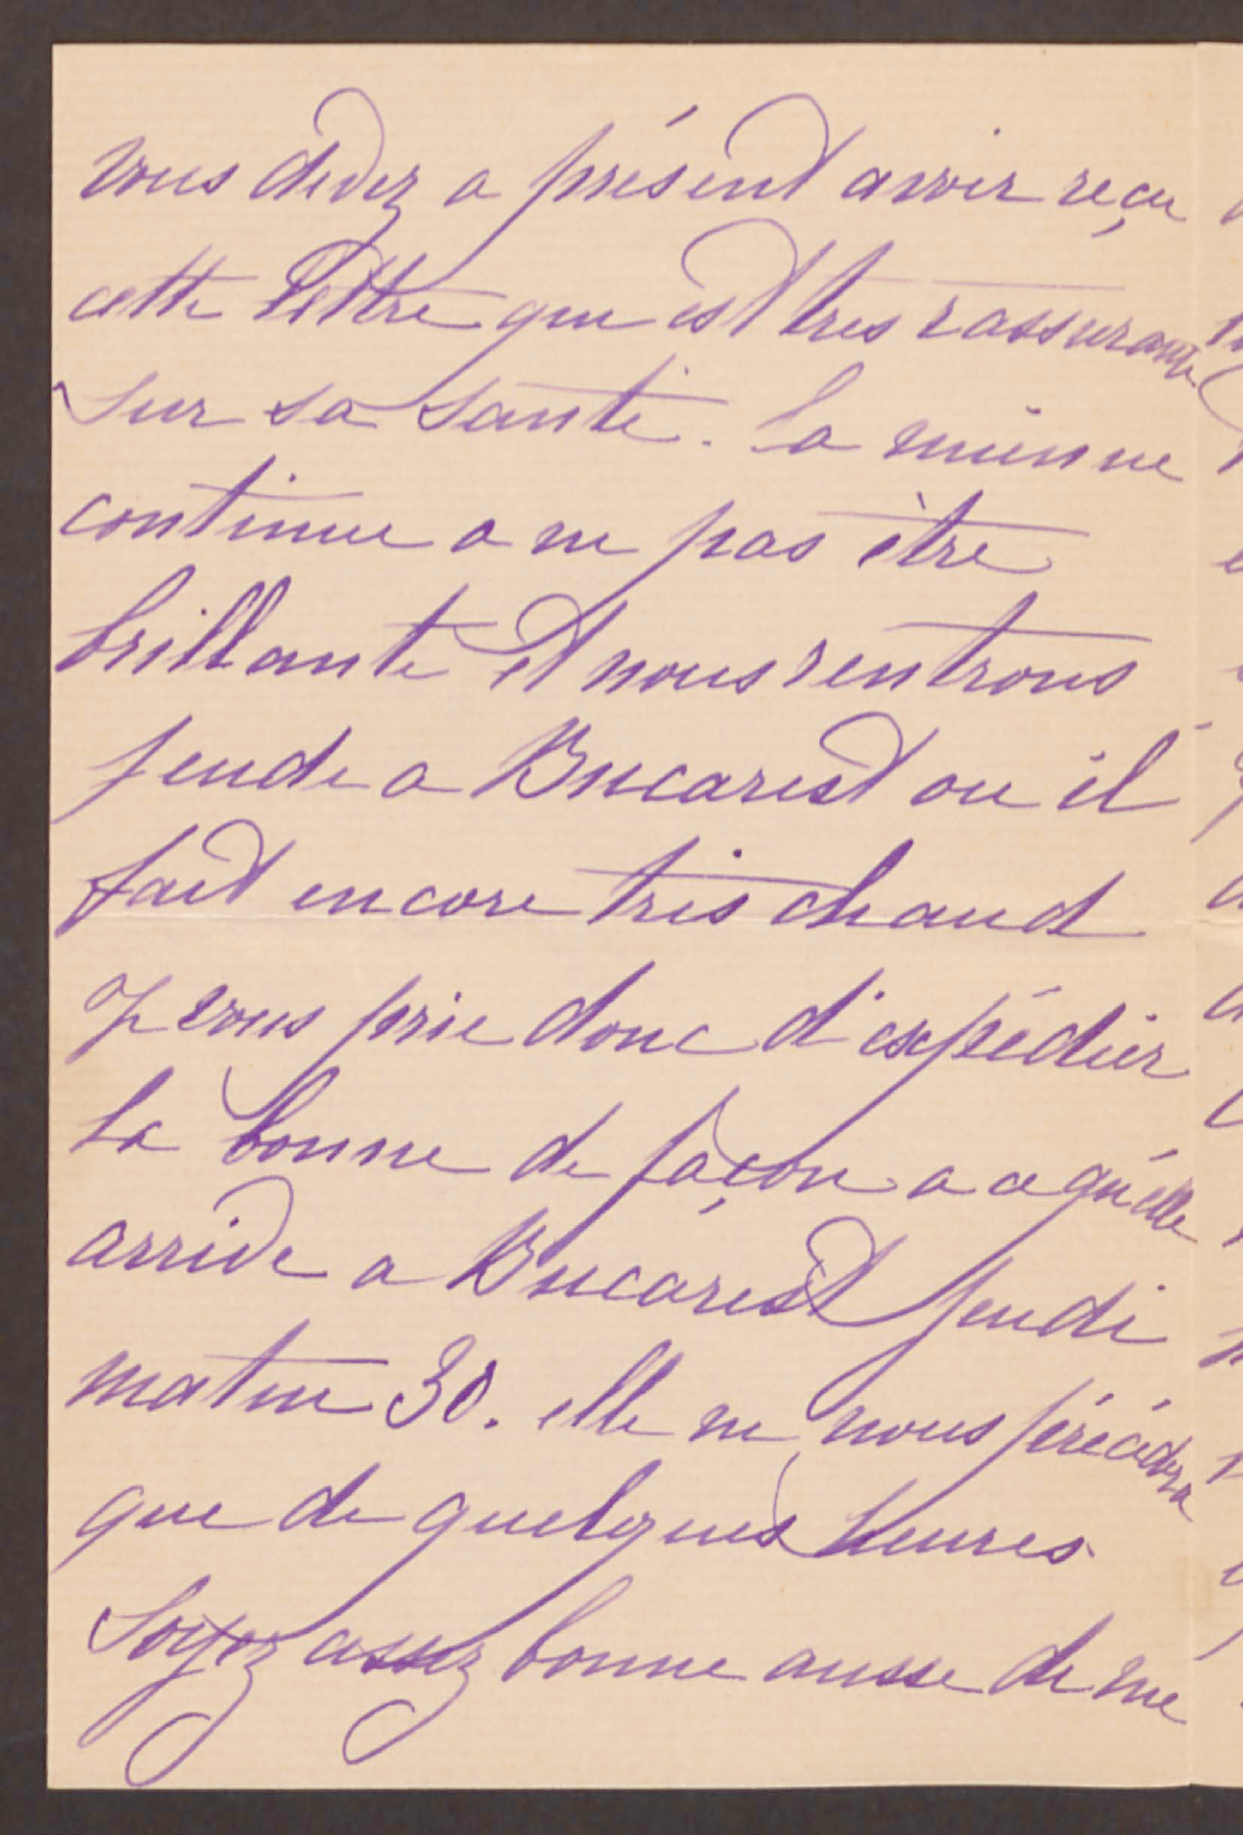 vous devez a présent avoir reçu
cette lettre qui est tres rassurante
sur sa santé. La mienne
continue a ne pas être
brillante et nous rentrons
jeudi a Bucarest ou il
fait encore tres chaud
Je vous prie donc d'expédier
la bonne de façon a ce qu'elle
arrive a Bucarest jeudi
matin 30. elle ne nous précédera
que de quelques heures
Soyez assez bonne aussi de me